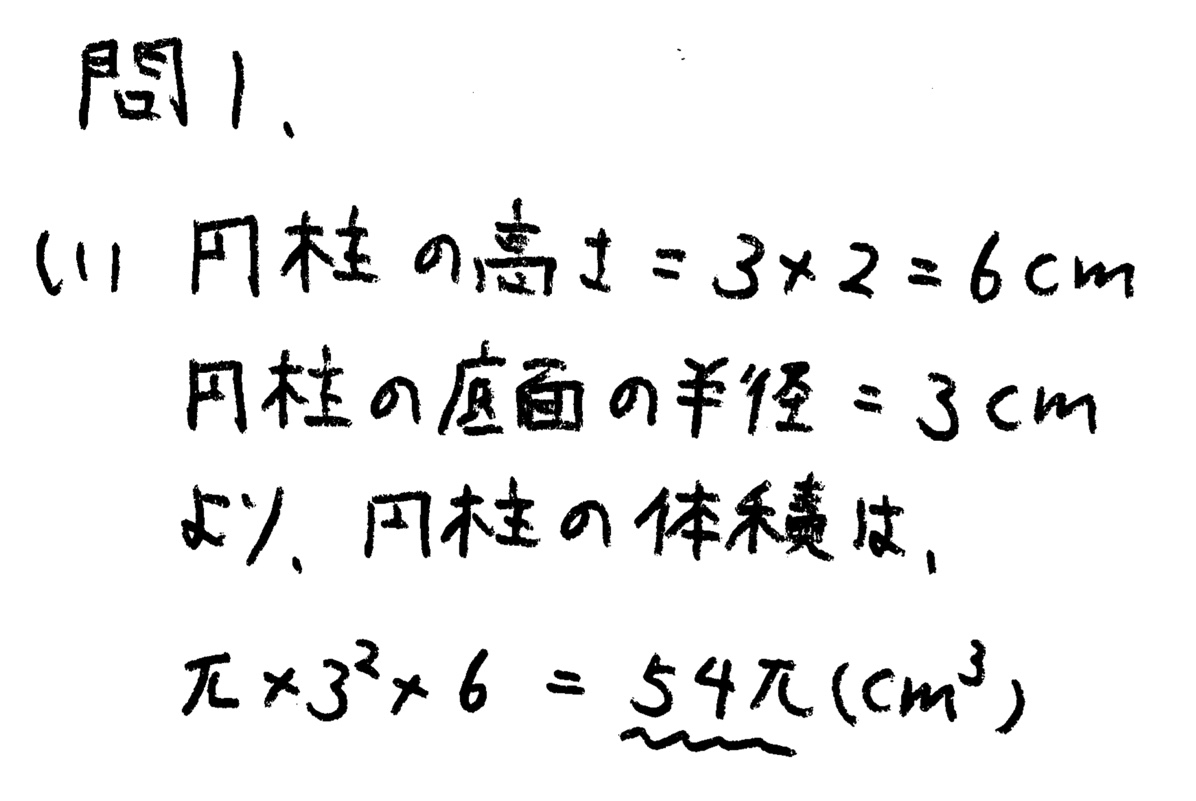 問1、
(1) 円柱の高さ = 3×2 = 6cm
円柱の底面の半径 = 3cm
より、円柱の体積は、
π×3²×6 = 54π(cm³)